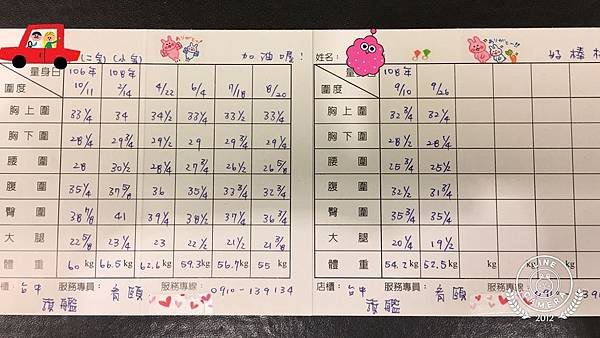 (二気) (小気) 加油喔!
量身日 106年 108年
圍度 10/11 2/14 4/22 6/4 7/18 8/20
胸上圍 33¼ 34 34½ 33¼ 33½ 33¼
胸下圍 28¼ 29¾ 29½ 29 29¾ 29¼
腰圍 28 30½ 28¼ 27¾ 26½ 26⅝
腹圍 35¼ 37⅝ 36 35¼ 33¾ 32¾
臀圍 38⅞ 41 39¼ 38½ 37¼ 36¾
大腿 22⅝ 23¼ 23 22½ 21½ 21⅜
體重 60kg 66.5kg 62.6kg 59.3kg 56.7kg 55kg
櫃:台中 服務專員: 服務專線:0910-139134
旗艦
姓名: 好棒
量 108年
圍度 9/10 9/26
胸上圍 32¾ 32¼
胸下圍 28½ 28½
腰圍 25¾ 25½
腹圍 32½ 31¾
臀圍 35¾ 35¼
大腿 20¼ 19½
體重 54.2kg 52.5kg kg kg
店櫃:台中 服務專員:
旗艦
2012